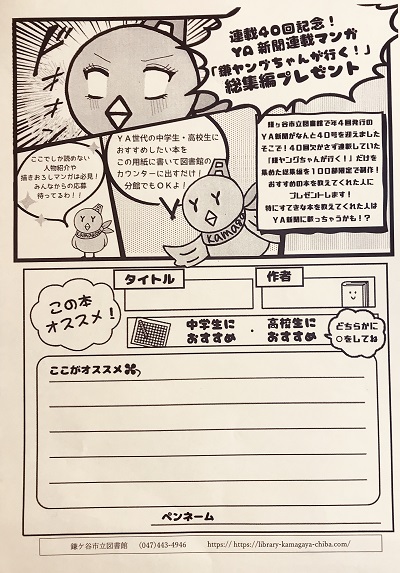 連載40回記念！
YA新聞連載マンガ
「鎌ヤングちゃんが行く！」
総集編プレゼント
ドオオン
鎌ヶ谷市立図書館で年4回発行の
YA新聞がなんと40号を迎えました
そこで！40回欠かさず連載していた
「鎌ヤングちゃんが行く！」だけを
集めた総集編を100部限定で制作！
おすすめの本を教えてくれた人に
プレゼントします！
特にすてきな本を教えてくれた人は
YA新聞に載っちゃうかも！？
YA世代の中学生・高校生に
おすすめしたい本を
この用紙に書いて図書館の
カウンターに出すだけ！
分館でもOKよ！
ここでしか読めない
人物紹介や
描きおろしマンガは必見！
みんなからの応募
待ってるわ！！
kamaga
この本
オススメ！
タイトル
作者
中学生に
おすすめ
・
高校生に
おすすめ
どちらかに
○をしてね
ここがオススメ
ペンネーム
鎌ケ谷市立図書館 (047)443-4946 https://https://library-kamagaya-chiba.com/